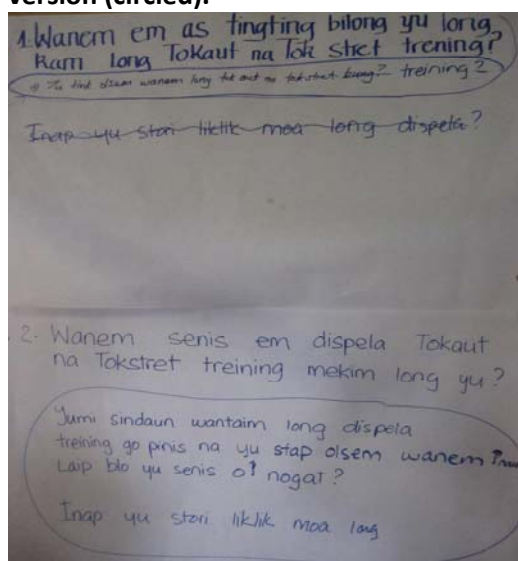 version (circled).
1. Wanem em as tingting bilong yu long
kam long Tokaut na Tok stret trening?
Yu tink olsem wanem long tok aut na tokstret bung? treining?
Inap yu stori liklik moa long dispela?
2. Wanem senis em dispela Tokaut
na Tokstret treining mekim long yu?
Yumi sindaun wantaim long dispela
treining go pinis na yu stap olsem wanem?
Laip blo yu senis o? nogat?
Inap yu stori liklik moa long